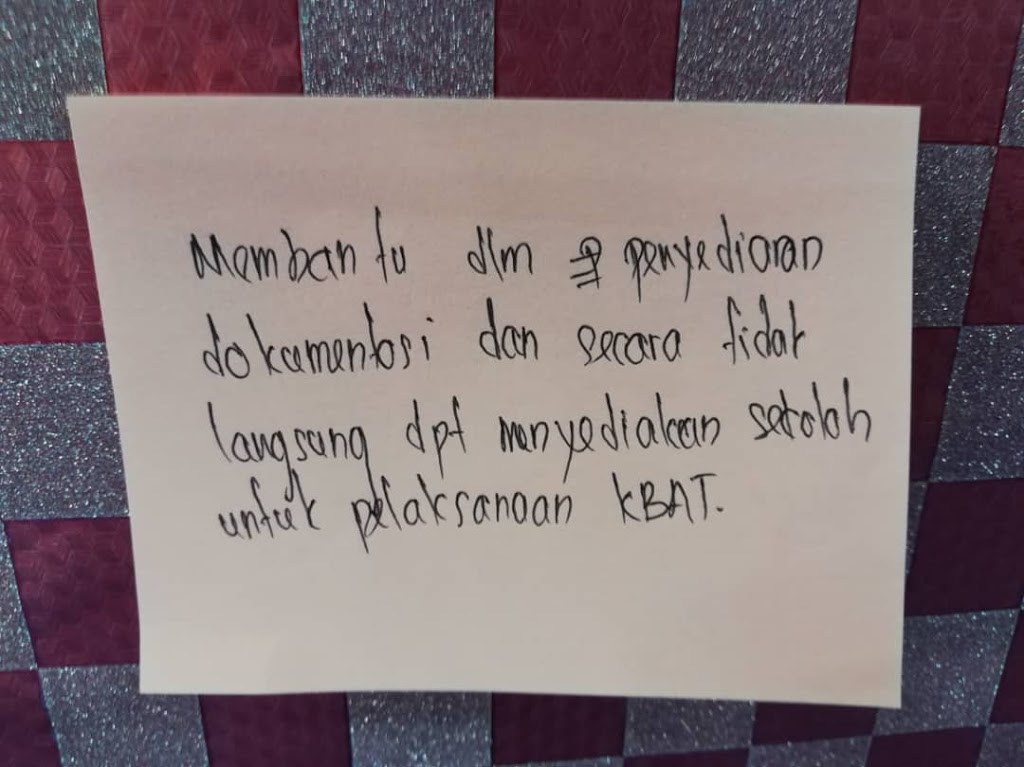 Membantu dlm penyediaan
dokumentasi dan secara tidak
langsung dpt menyediakan sekolah
untuk pelaksanaan KBAT.